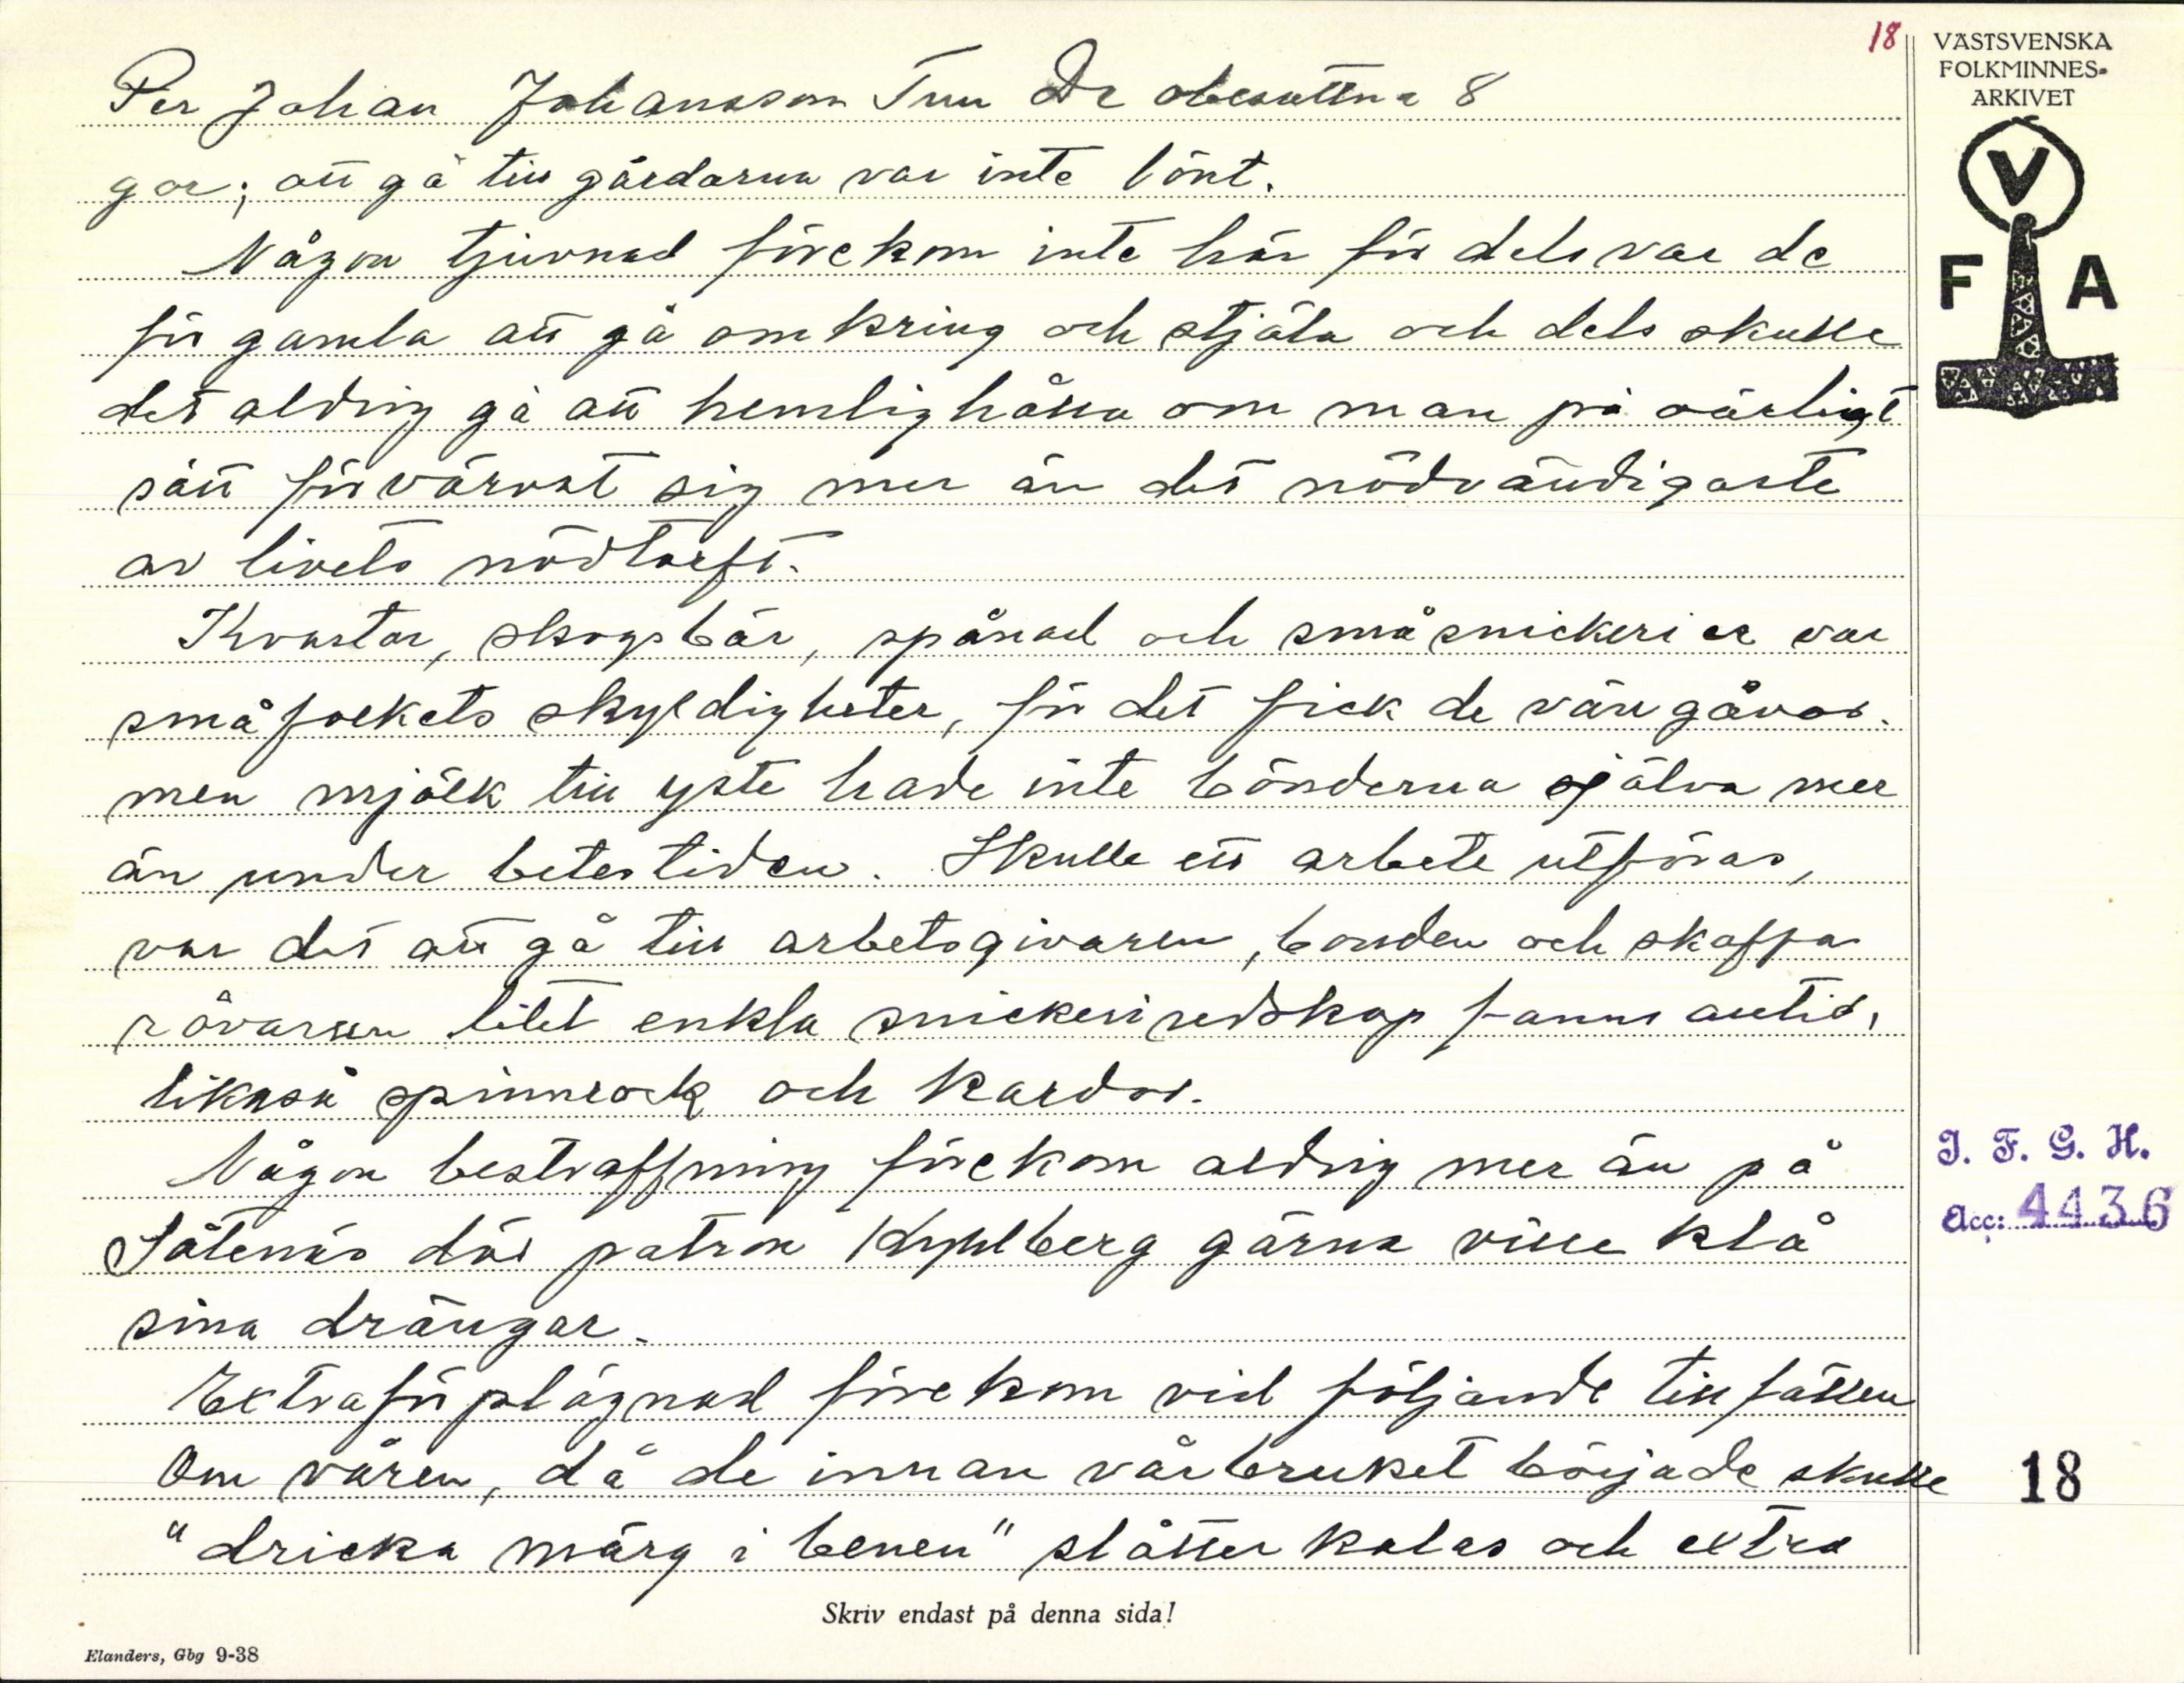 18
VÄSTSVENSKA
FOLKMINNES-
ARKIVET
V
F A
Per Johan Johansson Tun De obesuttna 8
gor; att gå till gårdarna var inte lönt.
Någon tjuvnad förekom inte här för dels var de
för gamla att gå omkring och stjäla och dels skulle
det aldrig gå att hemlighålla om man på oärligt
sätt förvärvat sig mer än det nödvändigaste
av livets nödtorft.
Kvastar, skogsbär, spånad och småsnickerier var
småfolkets skyldigheter, för det fick de vängåvor.
men mjölk till yste hade inte bönderna själva mer
än under betestiden. Skulle ett arbete utföras,
var det att gå till arbetsgivaren, bonden och skaffa
råvaran litet enkla snickeriredskap fanns alltid,
likaså spinnrock och kardor.
Någon bestraffning förekom aldrig mer än på
Såtenäs där patron Kyhlberg gärna ville klå
sina drängar.
Extraförplägnad förekom vid följande tillfällen
Om våren, då de innan vårbruket började skulle
"dricka märg i benen" slåtterkalas och extra
I. F. G. H.
Acc: 4436
18
Skriv endast på denna sida!
Elanders, Gbg 9-38